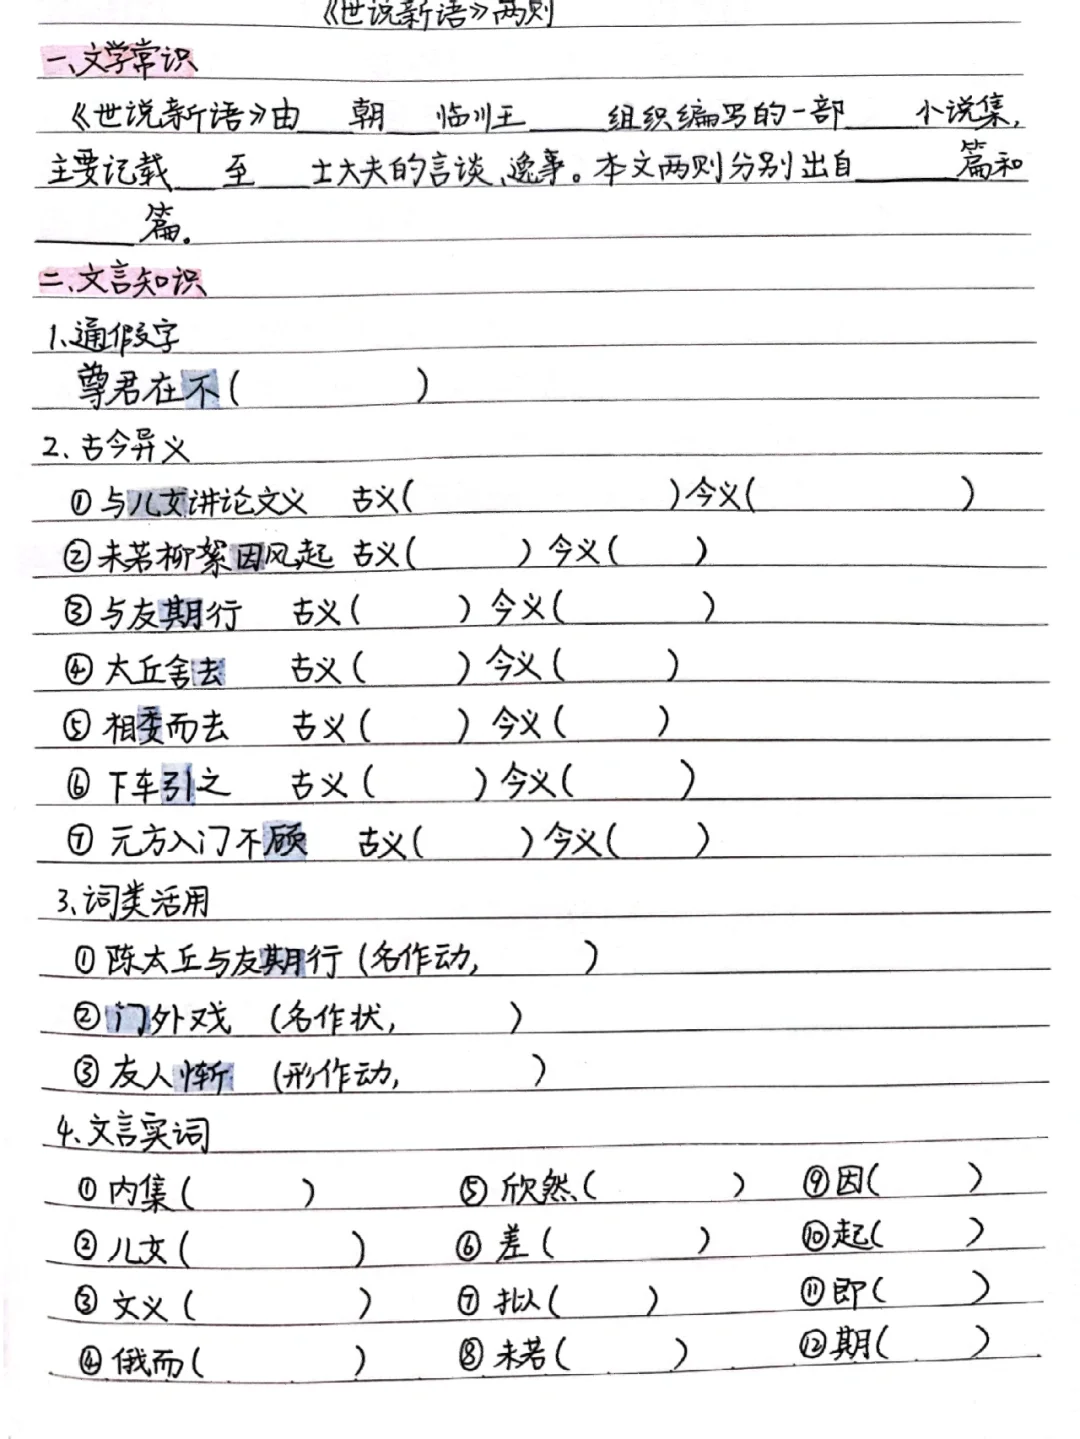 《世说新语》两则
一、文学常识
《世说新语》由___朝___临川王____组织编写的一部____小说集,
主要记载___至___士大夫的言谈、逸事。本文两则分别出自______篇和
______篇。
二、文言知识
1、通假字
尊君在不( )
2、古今异义
①与儿女讲论文义 古义( )今义( )
②未若柳絮因风起 古义( )今义( )
③与友期行 古义( )今义( )
④太丘舍去 古义( )今义( )
⑤相委而去 古义( )今义( )
⑥下车引之 古义( )今义( )
⑦元方入门不顾 古义( )今义( )
3、词类活用
①陈太丘与友期行(名作动, )
②门外戏 (名作状, )
③友人惭 (形作动, )
4、文言实词
①内集( ) ⑤欣然( ) ⑨因( )
②儿女( ) ⑥差( ) ⑩起( )
③文义( ) ⑦拟( ) ⑪即( )
④俄而( ) ⑧未若( ) ⑫期( )